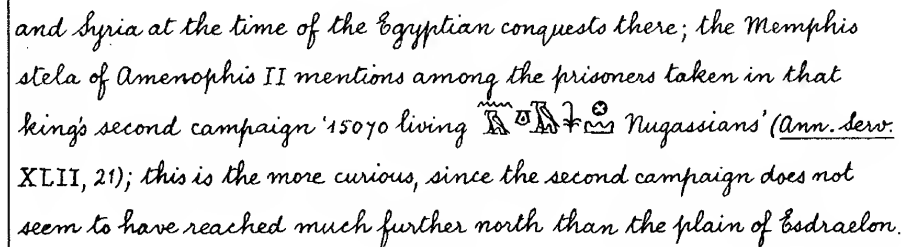 and Syria at the time of the Egyptian conquests there; the Memphis
stela of Amenophis II mentions among the prisoners taken in that
king's second campaign '15070 living Nugassians' (Ann. Serv.
XLII, 21); this is the more curious, since the second campaign does not
seem to have reached much further north than the plain of Esdraelon.